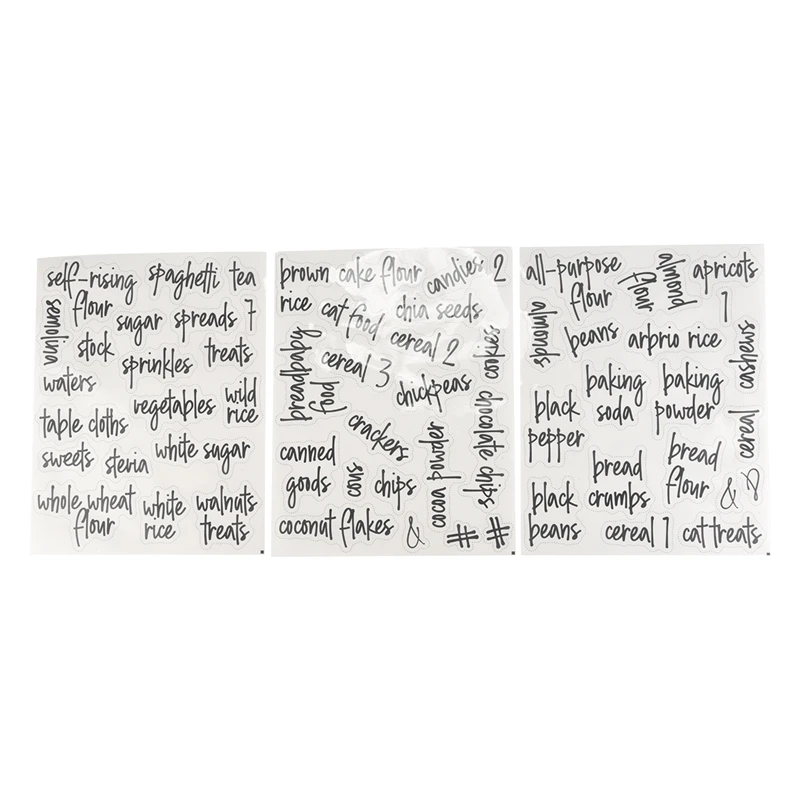 self-rising
flour
spaghetti
tea
semolina
sugar
spreads
7
stock
sprinkles
treats
waters
vegetables
wild
rice
table cloths
sweets
steria
white sugar
whole wheat
flour
white
rice
walnuts
treats
brown
rice
cake flour
candies 2
cat food
chia seeds
cereal 2
cookies
breadbaby
food
cereal 3
chickpeas
crackers
chocolate chips
canned
goods
cous
chips
cocoa powder
coconut flakes
&
#
#
all-purpose
flour
almond
flour
apricots
1
almonds
beans
arbrio rice
cashews
baking
soda
baking
powder
black
pepper
cereal
bread
crumbs
bread
flour
&
black
beans
cereal 1
cat treats